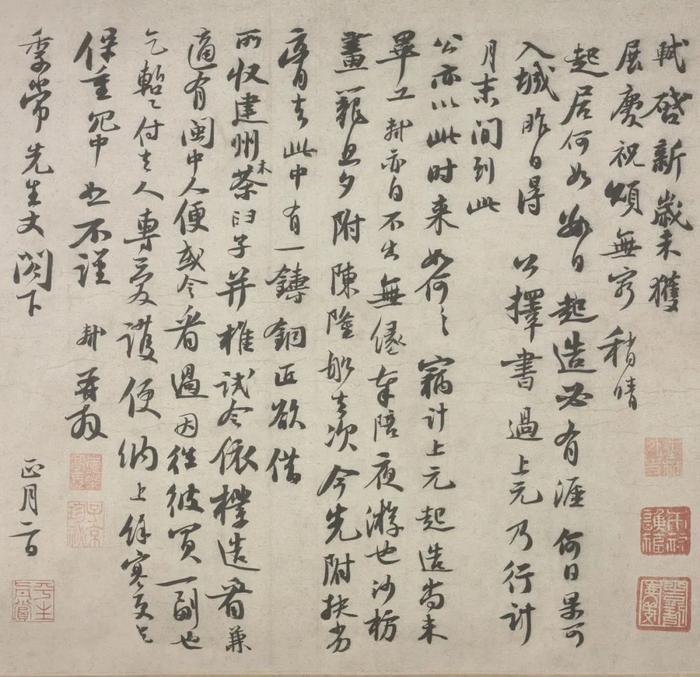 軾啓新歲未獲
展慶祝頌無窮稍晴
起居何如數日起造必有涯何日果可
入城昨日得公擇書過上元乃行計
月末間到此
公亦以此時來如何〻竊計上元起造尚未
畢工軾亦自不出無緣奉陪夜游也沙枋
畫籠旦夕附陳隆船去次今先附扶劣
膏去此中有一鑄銅匠欲借
所收建州木茶臼子并椎試令依樣造看兼
適有閩中人便或令看過因往彼買一副也
乞暫付去人專愛護便納上餘寒更乞
保重冗中恕不謹軾再拜
季常先生丈閤下
正月二日